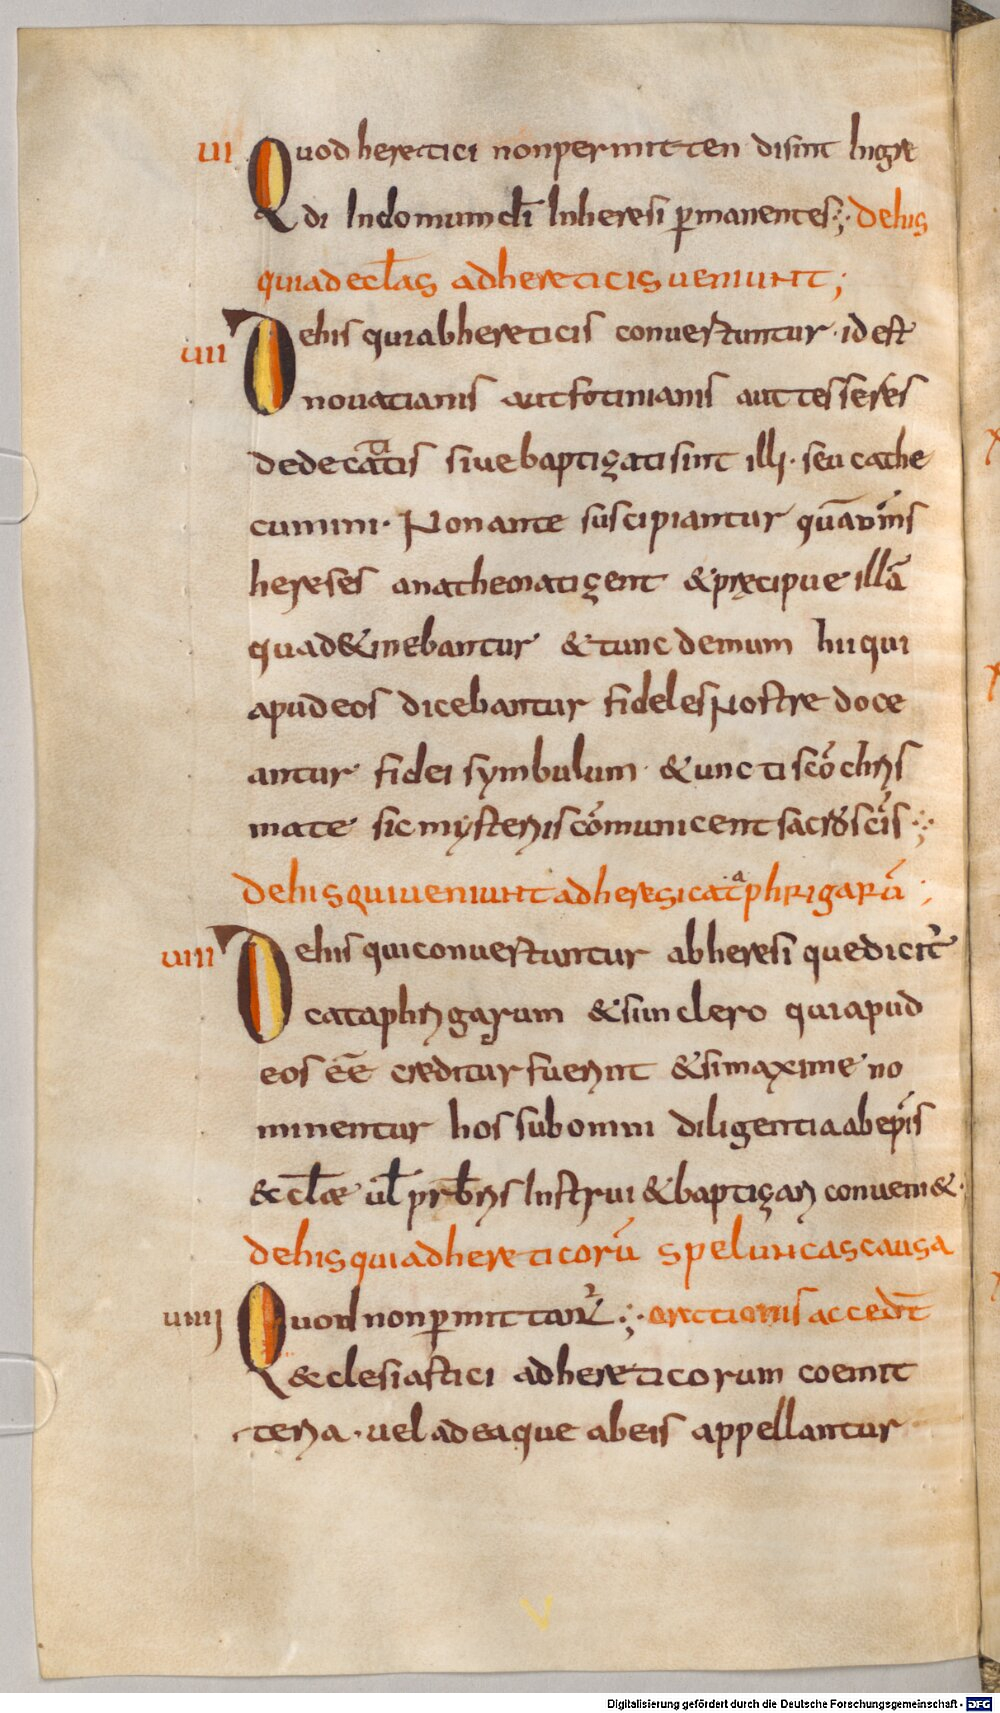 VI Quod heretici non permittendi sint Ingre
di In domum dī In heresi p̄manentes:· de hiis
qui ad ecl̄as ad hereticis veniunt;
VII De his qui ab hereticis convertuntur· id est
novatianis aut fotinianis aut tesseres
dedecatis siue baptizati sint illi· seu cathe
cumini· Non ante suscipiantur quā om̄s
hereses anathematizent & precipue illā
qua d&inebantur & tunc demum hii qui
apud eos dicebantur fideles Nostre doce
antur fidei symbulum· & uncti scō chris
mate sic mysteriis cōmunicent sacrōscīs:·
de his qui veniunt ad heresi cataphrigarū;
VIII De his qui convertuntur ab heresi que dicit̄
cataphrigarum & si in clero qui apud
eos eē creditur fuerint & si maxime no
minentur hos sub omni diligentia ab epīs
& ecl̄ae ul̄ prb̄ris Instrui & baptizari conveni&·
de his qui ad hereticorū speluncas causa
VIIII Quod non p̄mittant̄:· orationis accedit̄
& eclesiastici ad hereticorum coemit
teria· vel ad ea que ab eis appellantur
V
Digitalisierung gefördert durch die Deutsche Forschungsgemeinschaft - DFG